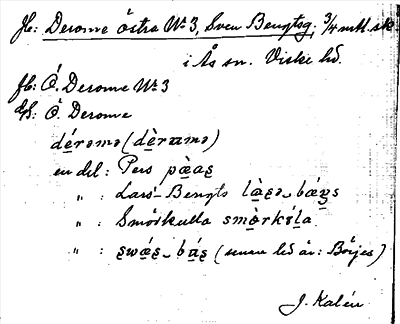 Jb: Derome östra No 3, Sven Bengtsg. 3/4 mtl. sk
i Ås sn. Viske hd.
fb: Ö. Derome No 3
Ö. Derome
dérəmə (dèramə)
en del: Pers pàas
" : Lars-Bengts
" : Smörkulla smòrkúla
" : (senare led är: Börjes)
J. Kalén